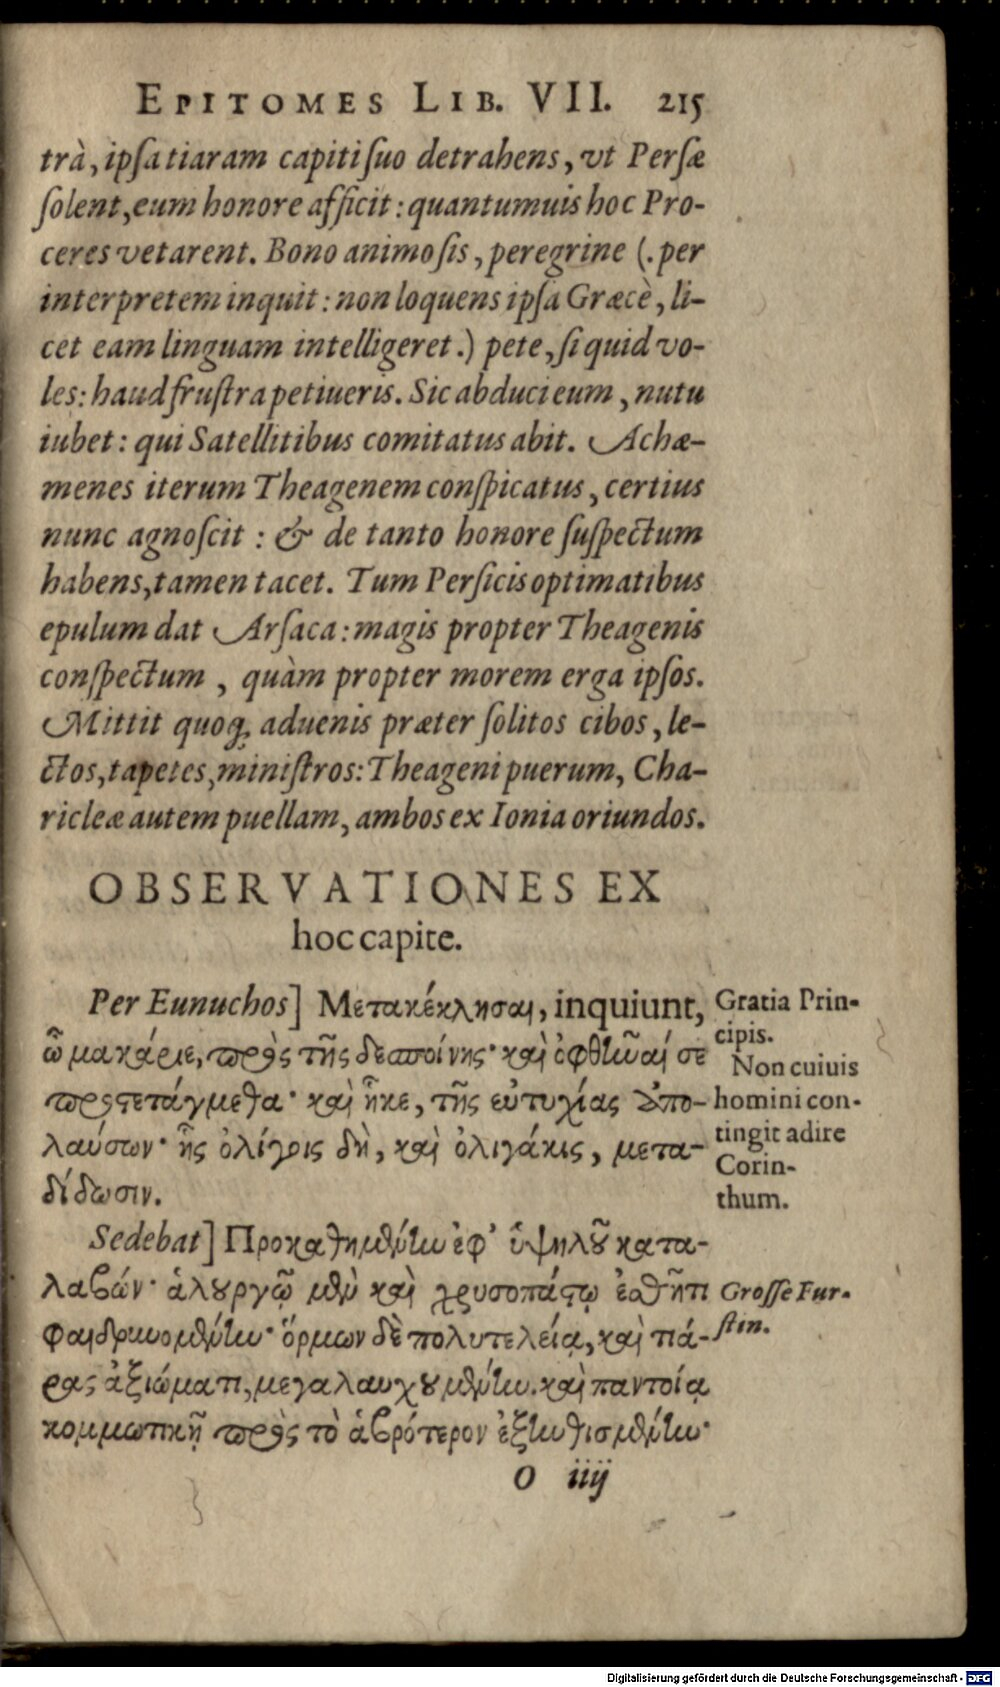 EPITOMES LIB. VII. 215
trà, ipſa tiaram capiti ſuo detrahens, vt Perſæ
ſolent, eum honore afficit: quantumuis hoc Pro-
ceres vetarent. Bono animo ſis, peregrine (.per
interpretem inquit: non loquens ipſa Græcè, li-
cet eam linguam intelligeret.) pete, ſi quid vo-
les: haud fruſtra petiueris. Sic abduci eum, nutu
iubet: qui Satellitibus comitatus abit. Achæ-
menes iterum Theagenem conſpicatus, certius
nunc agnoſcit: & de tanto honore ſuſpectum
habens, tamen tacet. Tum Perſicis optimatibus
epulum dat Arſaca: magis propter Theagenis
conſpectum, quàm propter morem erga ipſos.
Mittit quoq; aduenis præter ſolitos cibos, le-
ctos, tapetes, miniſtros: Theageni puerum, Cha-
ricleæ autem puellam, ambos ex Ionia oriundos.
OBSERVATIONES EX
hoc capite.
Per Eunuchos] Μετακέκλησαι, inquiunt,
ὦ μακάριε, πρὸς τῆς δεσποίνης· καὶ ὀφθῆναί σε
προςτετάγμεθα· καὶ ἧκε, τῆς εὐτυχίας ἀπο-
λαύσων· ἧς ὀλίγοις δὴ, καὶ ὀλιγάκις, μετα-
δίδωσιν.
Gratia Prin-
cipis.
Non cuiuis
homini con-
tingit adire
Corin-
thum.
Sedebat] Προκαθημένην ἐφ' ὑψηλοῦ κατα-
λαβών· ἁλουργῷ μὲν καὶ χρυσοπάστῳ ἐσθῆτι
φαιδρυνομένην· ὅρμων δὲ πολυτελείᾳ, καὶ τιά-
ρας ἀξιώματι, μεγαλαυχουμένην. καὶ παντοίᾳ
κομμωτικῇ πρὸς τὸ ἁβρότερον ἐξηνθισμένην·
Groſſe Fur-
ſtin.
O iiij
Digitalisierung gefördert durch die Deutsche Forschungsgemeinschaft - DFG